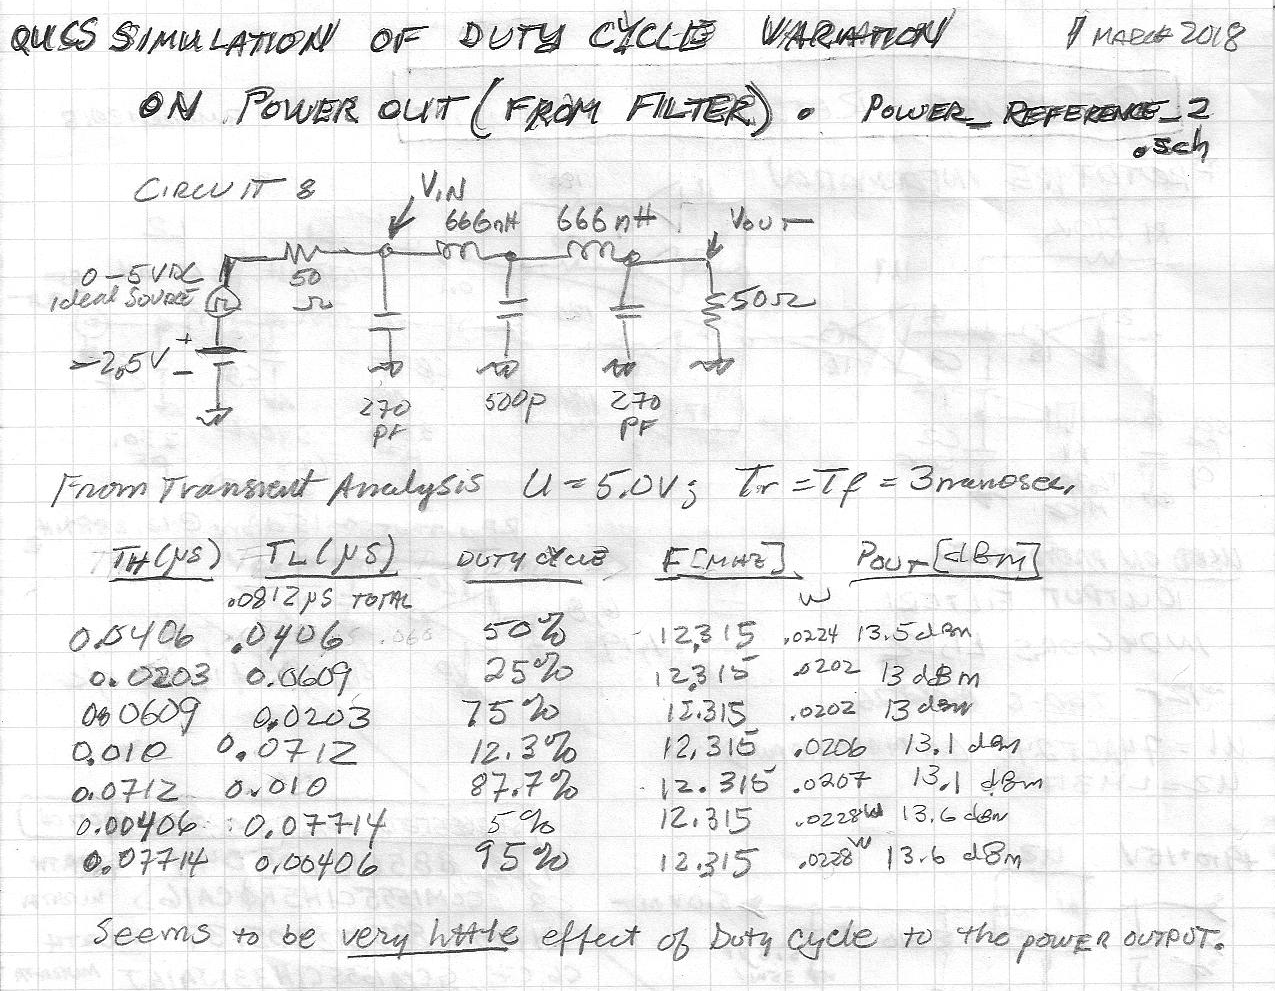 QUCS SIMULATION OF DUTY CYCLE VARIATION 1 MARCH 2018
ON POWER OUT (FROM FILTER). POWER_REFERENCE_2
.sch
CIRCUIT 8
VIN
666nH 666nH VOUT
0-5VDC
ideal SOURCE
50
Ω
50Ω
-2.5V + -
270
PF
500p
270
PF
From Transient Analysis U = 5.0V; Tr = Tf = 3nanosec.
TH(µS) TL(µS) DUTY CYCLE F[MHZ] POUT[dBm]
.0812 µS TOTAL W
0.0406 .0406 50% 12.315 .0224 13.5 dBm
0.0203 0.0609 25% 12.315 .0202 13 dBm
0.0609 0.0203 75% 12.315 .0202 13 dBm
0.010 0.0712 12.3% 12.315 .0206 13.1 dBm
0.0712 0.010 87.7% 12.315 .0207 13.1 dBm
0.00406 0.07714 5% 12.315 .0228W 13.6 dBm
0.07714 0.00406 95% 12.315 .0228W 13.6 dBm
Seems to be very little effect of Duty Cycle to the POWER OUTPUT.